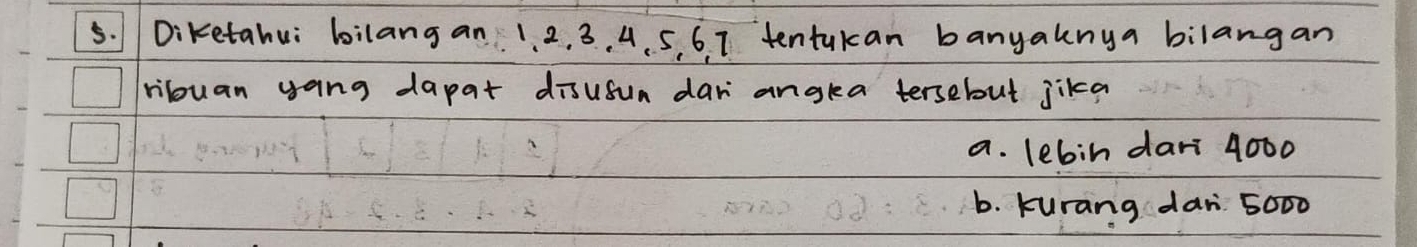 5. Diketahui bilangan 1,2,3,4,5,6,7 tentukan banyaknya bilangan
ribuan yang dapat disusun dari angka tersebut jika
a. lebih dari 4000
b. kurang dari 5000